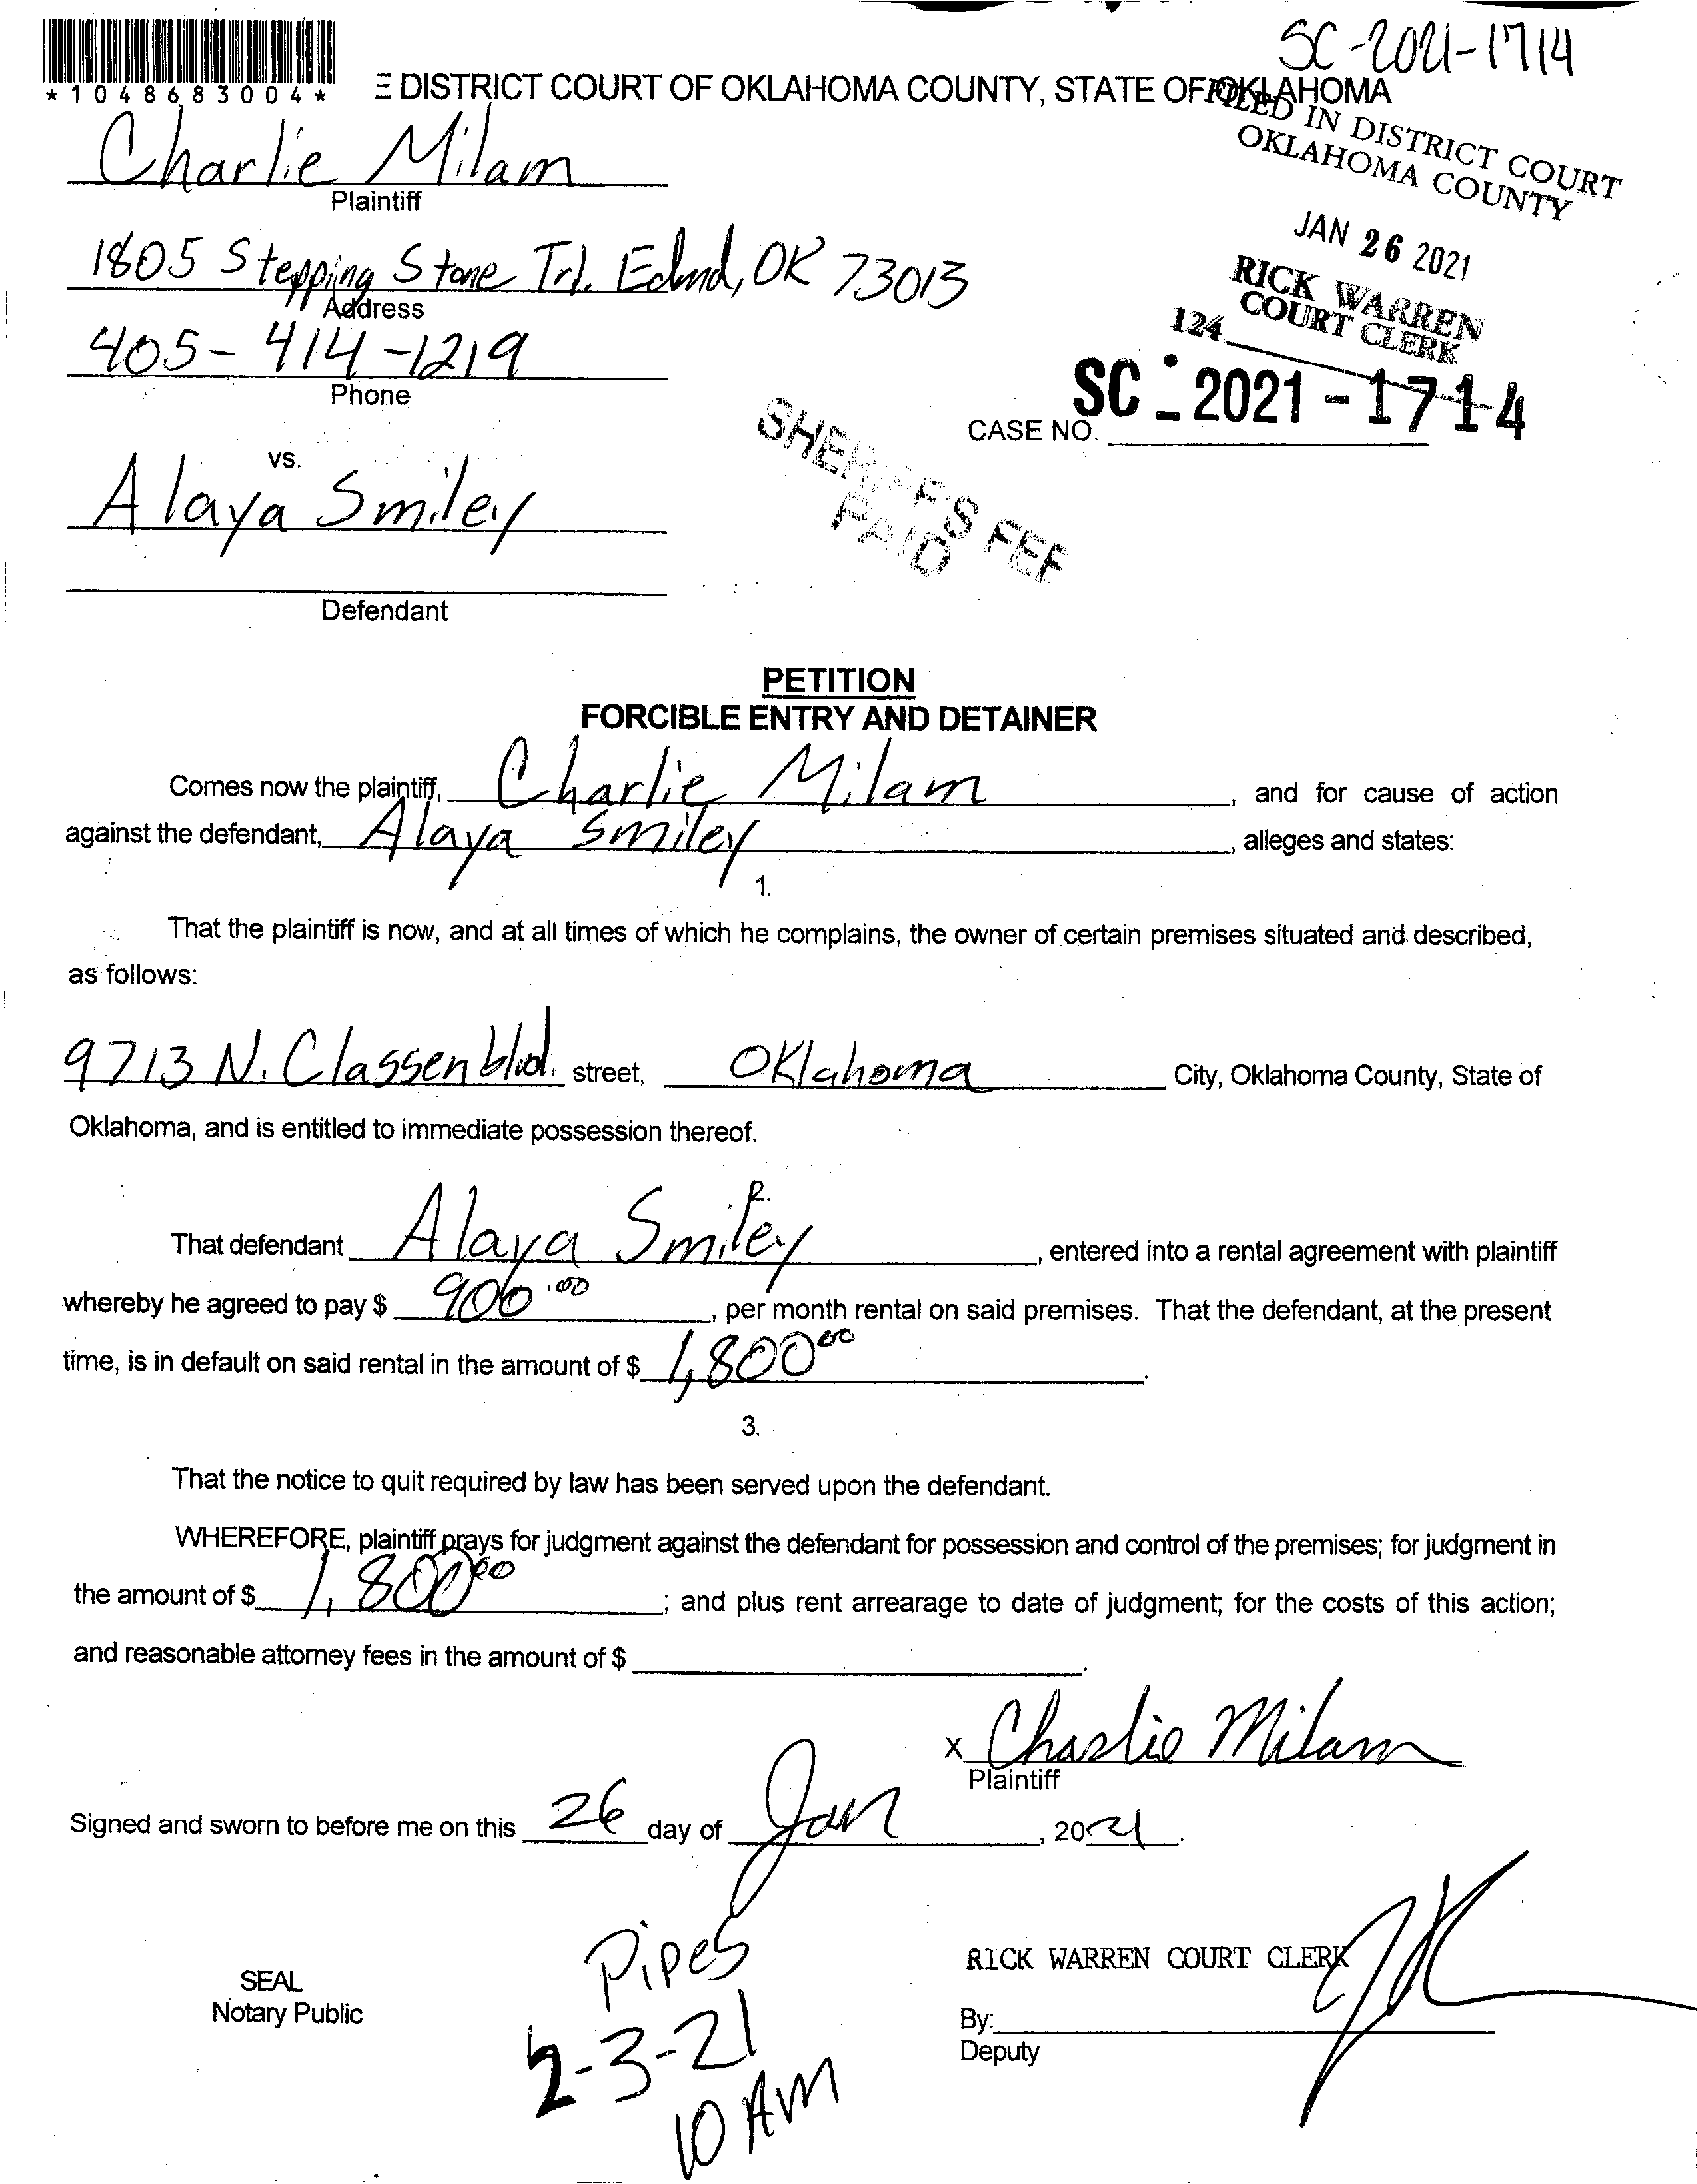 SC-2021-1714
*1048683004*
E DISTRICT COURT OF OKLAHOMA COUNTY, STATE OF OKLAHOMA
FILED IN DISTRICT COURT
OKLAHOMA COUNTY
Charlie Milam
Plaintiff
JAN 26 2021
1805 Stepping Stone Trl. Edmd, OK 73013
Address
RICK WARREN
COURT CLERK
124
405-414-1219
Phone
CASE NO. SC-2021-1714
SHERIFFS FEE
PAID
vs.
Alaya Smiley
Defendant
PETITION
FORCIBLE ENTRY AND DETAINER
Comes now the plaintiff, Charlie Milam, and for cause of action
against the defendant, Alaya Smiley, alleges and states:
1.
That the plaintiff is now, and at all times of which he complains, the owner of certain premises situated and described,
as follows:
9713 N. Classen blvd. street, Oklahoma City, Oklahoma County, State of
Oklahoma, and is entitled to immediate possession thereof.
2.
That defendant Alaya Smiley, entered into a rental agreement with plaintiff
whereby he agreed to pay $ 900.00, per month rental on said premises. That the defendant, at the present
time, is in default on said rental in the amount of $ 1,800 00.
3.
That the notice to quit required by law has been served upon the defendant.
WHEREFORE, plaintiff prays for judgment against the defendant for possession and control of the premises; for judgment in
the amount of $ 1,800 00; and plus rent arrearage to date of judgment; for the costs of this action;
and reasonable attorney fees in the amount of $ .
x Charlie Milam
Plaintiff
Signed and sworn to before me on this 26 day of Jan, 2021.
Pipes
2-3-21
10 AM
SEAL
Notary Public
RICK WARREN COURT CLERK
By:
Deputy